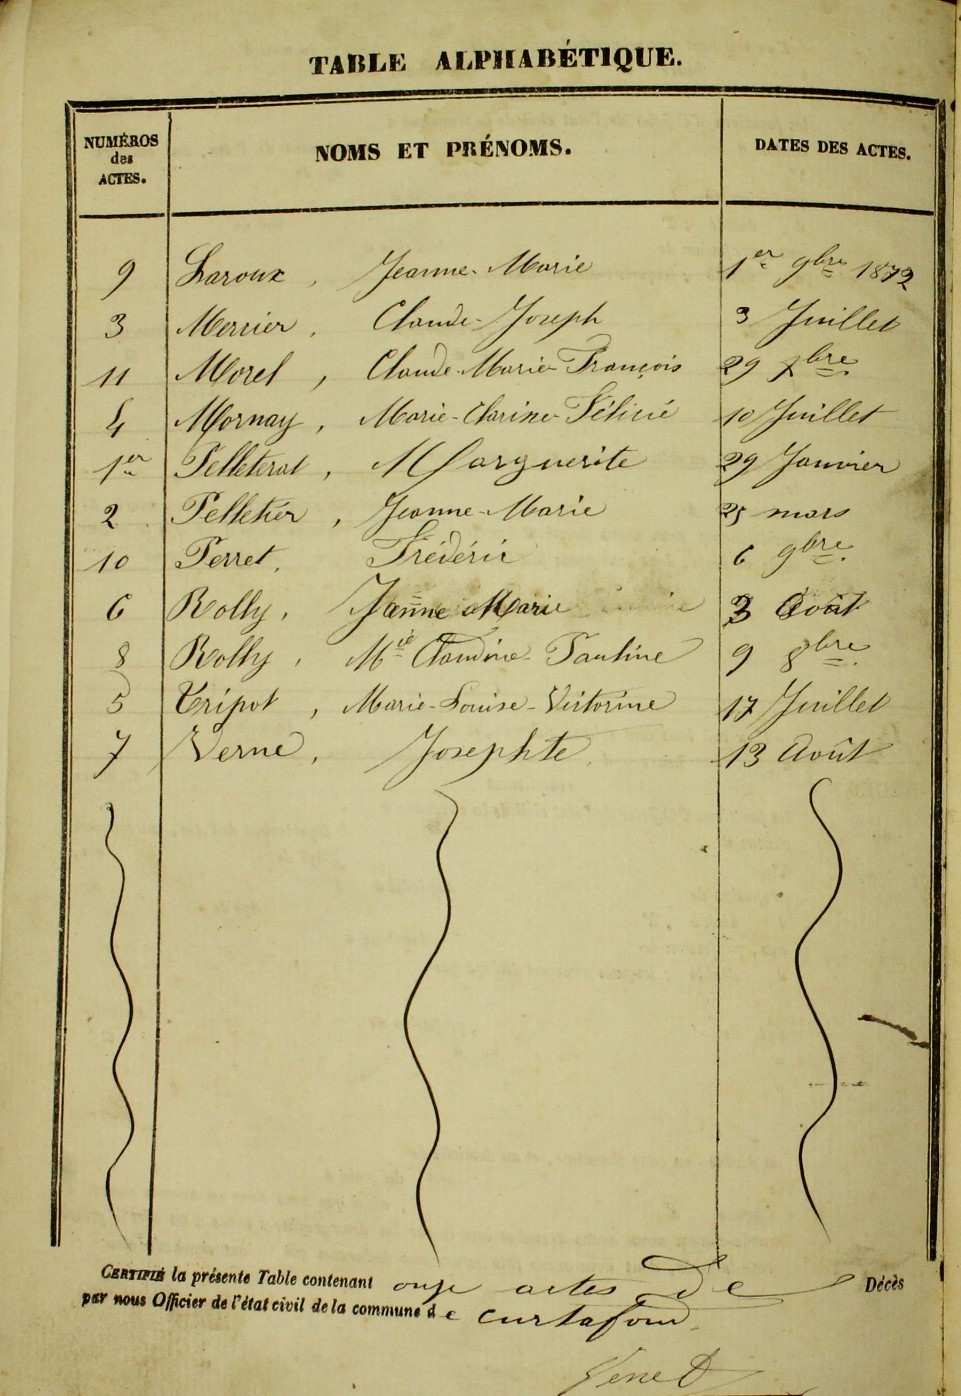 TABLE ALPHABÉTIQUE.
NUMÉROS des ACTES. NOMS ET PRÉNOMS. DATES DES ACTES.
9 Laroux, Jeanne-Marie 1er 9bre 1872
3 Mercier, Claude-Joseph 3 Juillet
11 Morel, Claude-Marie-François 29 xbre
4 Mornay, Marie-Clarine-Félicié 10 Juillet
1er Pelleterat, Marguerite 29 Janvier
2 Pelletier, Jeanne-Marie 25 mars
10 Perret, Frédéric 6 9bre
6 Rolly, Jeanne Marie 3 Août
8 Rolly, Mie Claudine-Pauline 9 8bre
5 Tripot, Marie-Louise-Victorine 17 Juillet
7 Verne, Josephte 13 Août
CERTIFIÉ la présente Table contenant onze actes De Décès
par nous Officier de l'état civil de la commune de Curtafond